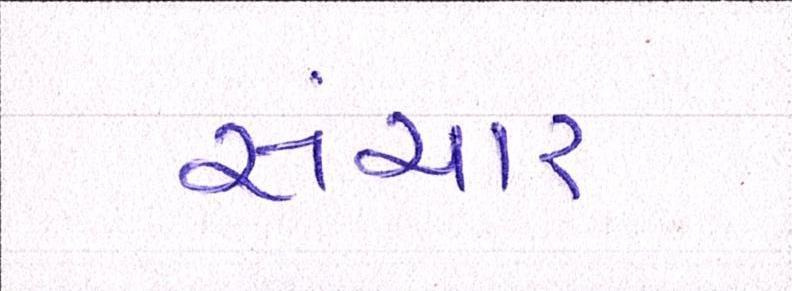 સંચાર